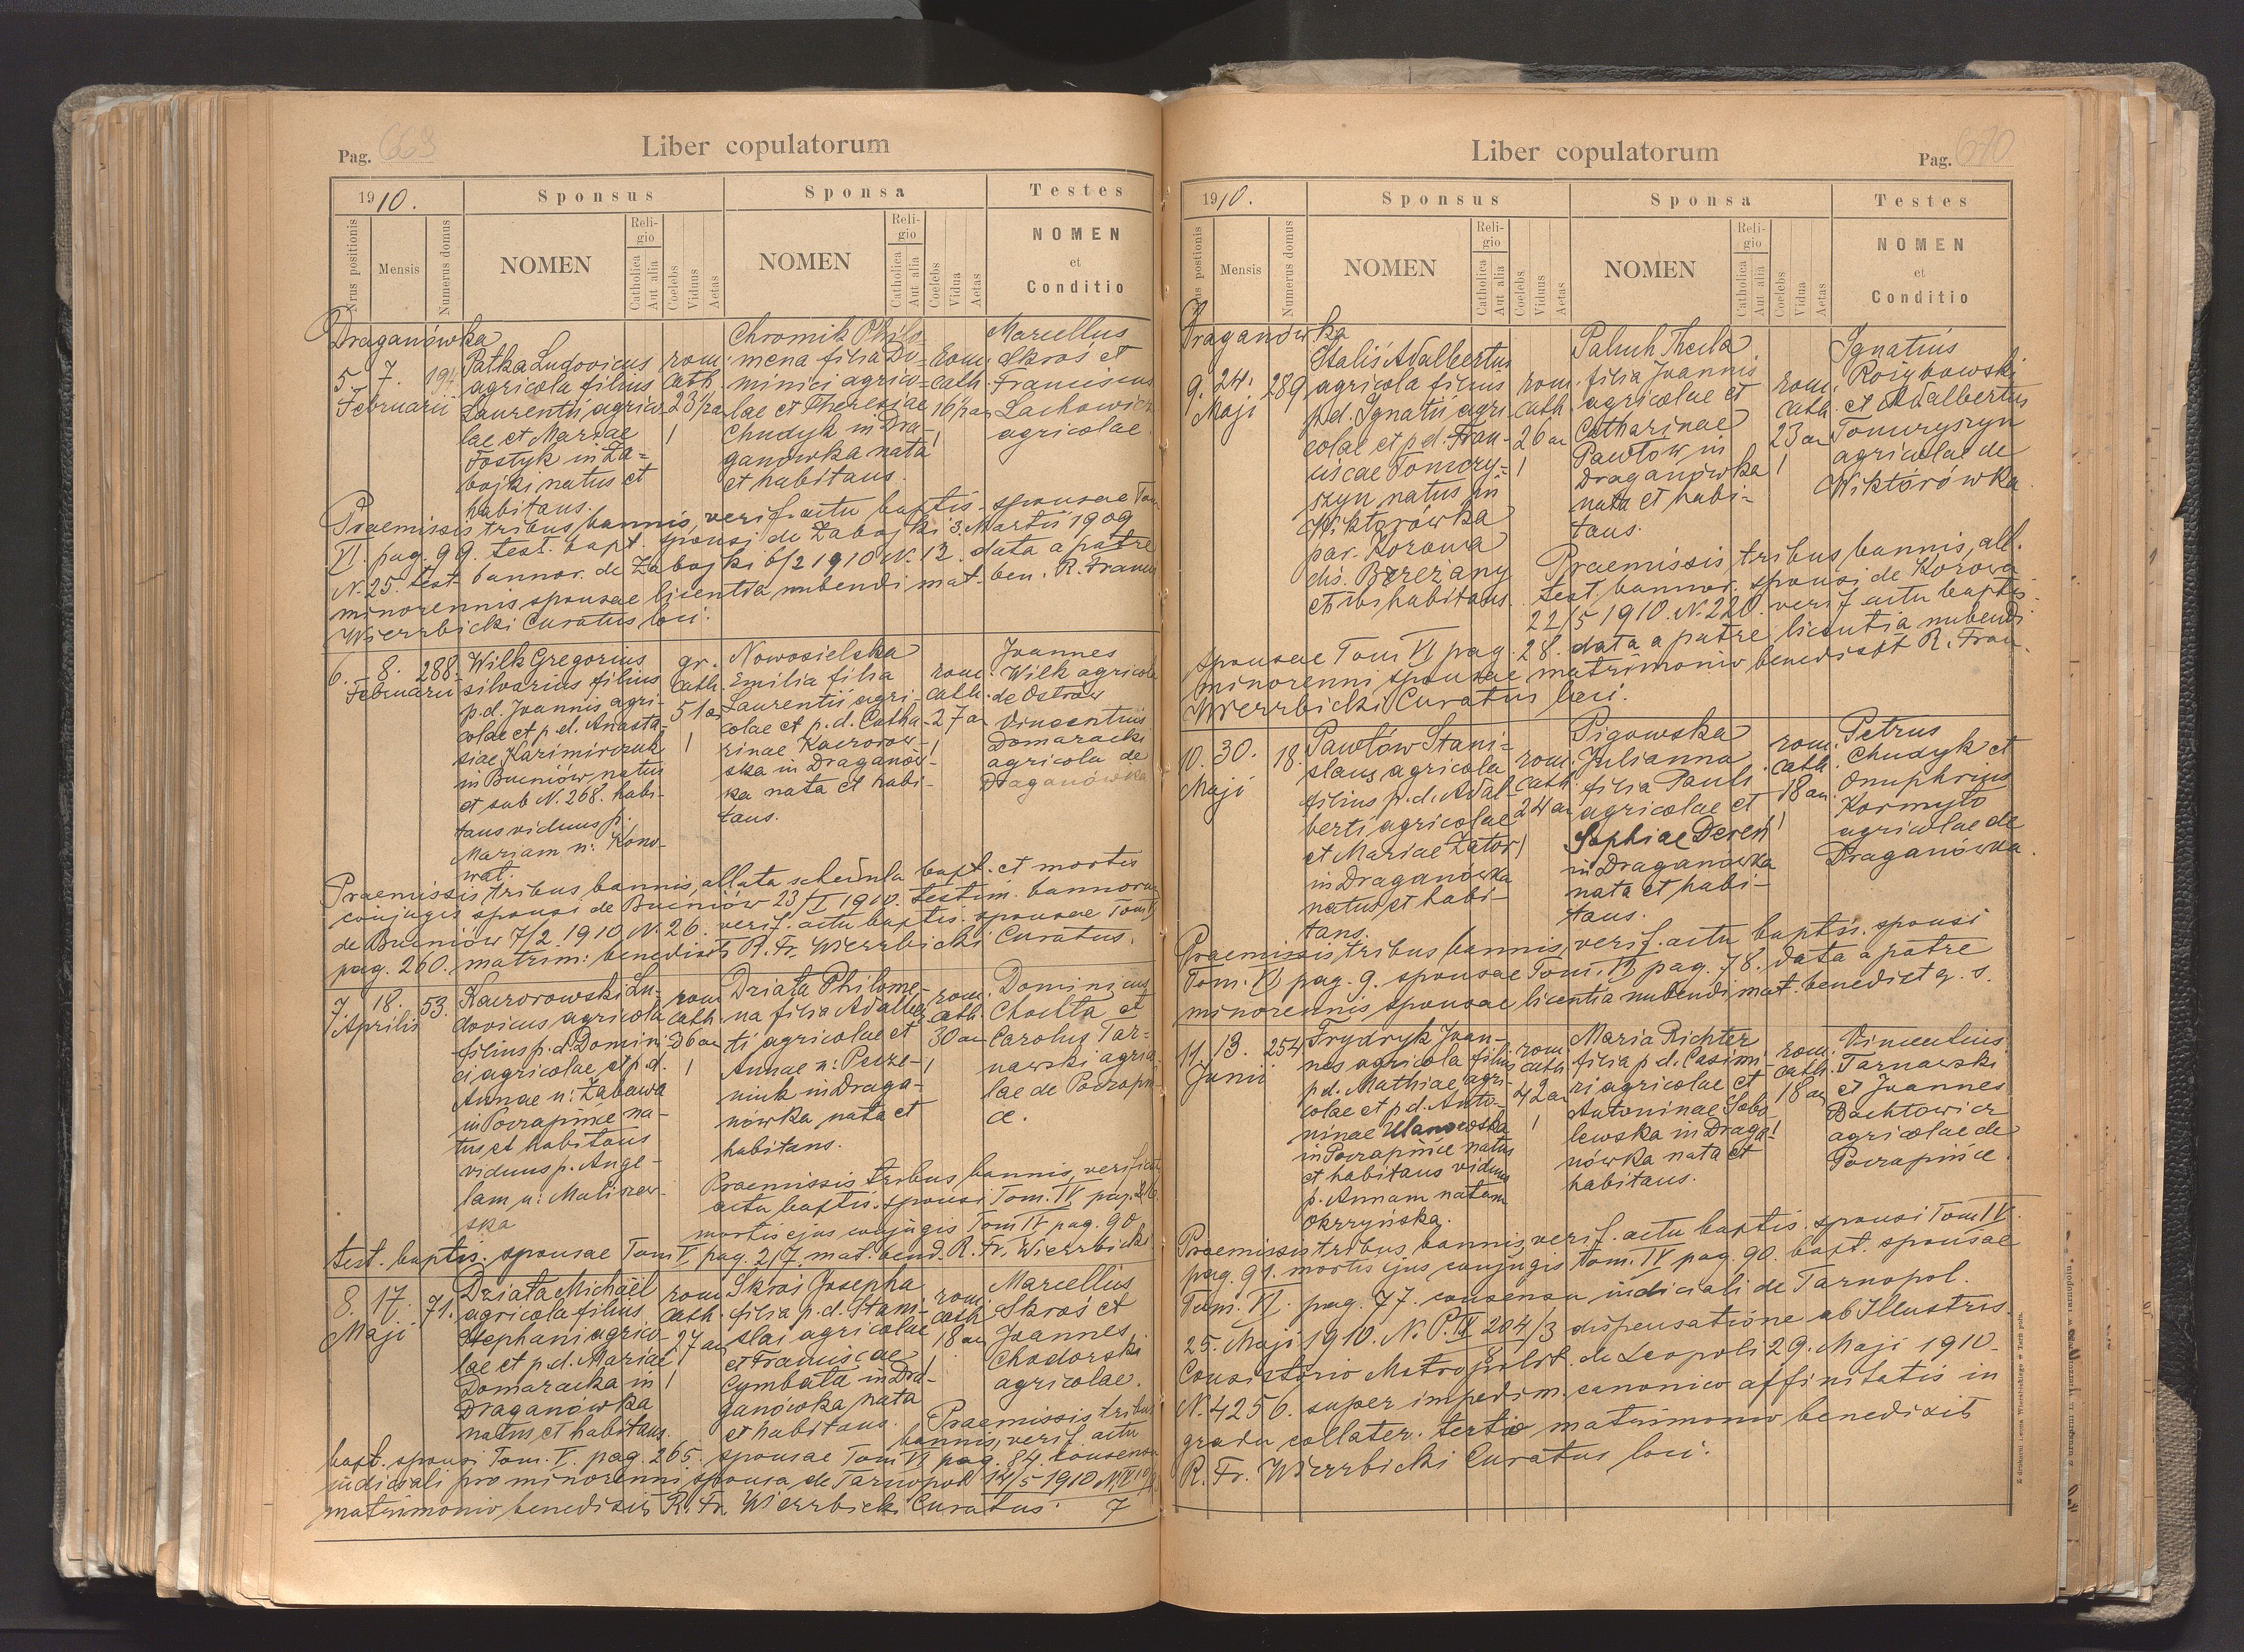 Liber copulatorum
Pag. 669
1910.
Sponsus
Sponsa
Testes
Nrus positionis
Mensis
Numerus domus
NOMEN
Religio
Catholica
Aut alia
Coelebs
Viduus
Aetas
NOMEN
Religio
Catholica
Aut alia
Coelebs
Vidua
Aetas
NOMEN
et
Conditio
Draganówka
5. 7.
Februarii
194
Patka Ludovicus
agricola filius
Laurentii agrico-
lae et Mariae
Fostyk in Za-
bojki natus et
habitans.
rom.
cath.
23½ a
1
Chromik Philo-
mena filia Do-
minici agrico-
lae et Theresiae
Chudyk in Dra-
ganówka nata
et habitans.
rom.
cath.
16½ an
1
Marcellus
Skroś et
Franciscus
Lachowicz
agricolae.
Praemissis tribus bannis, verif. actu baptis. sponsae Tom
VI. pag. 99. test. bapt. sponsi de Zabojki 3. Martii 1909
N. 25. test. bannor. de Zabojki 6/2 1910 N. 12. data a patre
minorennis sponsae licentia nubendi mat. ben. R. Franc.
Wierzbicki Curatus loci.
6. 8.
Februarii
288
Wilk Gregorius
silvarius filius
p.d. Joannis agri-
colae et p.d. Anasta-
siae Kazimirczuk
in Bucniów natus
et sub N. 268. habi-
tans viduus p.
Mariam n: Kono-
wat.
gr.
cath.
51 an
1
Nowosielska
Emilia filia
Laurentii agri-
colae et p.d. Catha-
rinae Kaczorow-
ska in Draganów-
ka nata et habi-
tans.
rom.
cath.
27 an
1
Joannes
Wilk agricola
de Ostrów
Vincentius
Domaracki
agricola de
Draganówka
Praemissis tribus bannis, allata schedula bapt. et mortis
conjugis sponsi de Bucniów 23/I 1910. testim. bannorum
de Bucniów 7/2 1910 N. 26. verif. actu baptis. sponsae Tom V
pag. 260. matrim: benedixit R. Fr. Wierzbicki Curatus.
7. 18.
Aprilis
53.
Kaczorowski Lu-
dovicus agricola
filius p.d. Domini-
ci agricolae et p.d.
Annae n: Zabawa
in Poczapińce na-
tus et habitans
viduus p. Ange-
lam n: Maliszew-
ska
rom
cath.
36 an
1
Dziata Philome-
na filia Adalber-
ti agricolae et
Annae n: Pecze-
niuk in Draga-
nówka nata et
habitans.
rom.
cath.
30 an
1
Dominicus
Chołta et
Carolus Tar-
nawski agrico-
lae de Poczapiń-
ce.
Praemissis tribus bannis, verificato
actu baptis. sponsi Tom. IV pag. 26
mortis ejus conjugis Tom IV pag. 90
test. baptis. sponsae Tom V pag. 217. mat. bened. R. Fr. Wierzbicki
8. 17.
Maji
71.
Dziata Michaël
agricola filius
Stephani agrico-
lae et p.d. Mariae
Domaracka in
Draganówka
natus et habitans.
rom
cath.
27 an
1
Skroś Josepha
filia p.d. Stani-
slai agricolae
et Franciscae
Cymbata in Dra-
ganówka nata
et habitans.
rom.
cath
18 an
1
Marcellus
Skroś et
Joannes
Chodorski
agricolae.
Praemissis tribus
bannis, verif. actu
bapt. sponsi Tom. V. pag. 265. sponsae Tom VI pag. 84. consensu
judiciali pro minorenni sponsa de Tarnopol 12/5 1910
matrimonio benedixit R. Fr. Wierzbicki Curatus.
7
Liber copulatorum
Pag. 670
1910.
Sponsus
Sponsa
Testes
Nrus postionis
Mensis
Numerus domus
NOMEN
Religio
Catholica
Aut alia
Coelebs
Viduus
Aetas
NOMEN
Religio
Catholica
Aut alia
Coelebs
Vidua
Aetas
NOMEN
et
Conditio
Draganówka
9. 24.
Maji
289
Staliś Adalbertus
agricola filius
p.d. Ignatii agri-
colae et p.d. Fran-
ciscae Tomczy-
szyn natus in
Wiktorówka
par. Kozowa
dis. Brzeżany
et ibi habitans.
rom.
cath.
26 an
1
Paluch Thecla
filia Joannis
agricolae et
Catharinae
Pawłów in
Draganówka
nata et habi-
tans.
rom.
cath.
23 an
1
Ignatius
Rozybowski
et Adalbertus
Tomczyszyn
agricolae de
Wiktórówka
Praemissis tribus bannis, all.
test. bannor. sponsi de Kozowa
22/5 1910. N. 220. verif. actu baptis.
sponsae Tom VI pag. 28. data a patre licentia nubendi
minorenni sponsae matrimonio benedixit R. Fran.
Wierzbicki Curatus loci.
10. 30.
Maji
18.
Pawłów Stani-
slaus agricola
filius p.d. Adal-
berti agricolae
et Mariae Zator
in Draganówka
natus et habi-
tans.
rom.
cath.
24 an
1
Pigowska
Julianna
filia Pauli
agricolae et
Sophiae Dereń
in Draganówka
nata et habi-
tans.
rom.
cath.
18 an.
1
Petrus
Chudyk et
Onuphrius
Kormyło
agricolae de
Draganówka.
Praemissis tribus bannis, verif. actu baptis. sponsi
Tom. VI pag. 9. sponsae Tom. VI pag. 78. data a patre
minorennis sponsae licentia nubendi mat. benedict q. s.
11. 13.
Junii
254
Frydryk Joan-
nes agricola filius
p.d. Mathiae agri-
colae et p.d. Anto-
ninae Ulanowska
in Poczapińce natus
et habitans viduus
p. Annam natam
Okrzyńska.
rom
cath
42 an
1
Maria Richter
filia p.d. Casimi-
ri agricolae et
Antoninae Sobo-
lewska in Draga-
nówka nata et
habitans.
rom.
cath.
18 an
1
Vincentius
Tarnawski
et Joannes
Bachtowicz
agricolae de
Poczapińce.
Praemissis tribus bannis, verif. actu baptis. sponsi Tom IV.
pag. 91. mortis ejus conjugis Tom. IV pag. 90. bapt. sponsae
Tom. VI. pag. 77. consensu judiciali de Tarnopol.
25. Maji 1910. N. P. IX 204/3 dispensatione ab Illustris.
Consistorio Metropolit. de Leopoli 29. Maji 1910.
N. 4256. super impedim. canonico affinitatis in
gradu collater. tertio matrimonio benedixit
R. Fr. Wierzbicki Curatus loci.